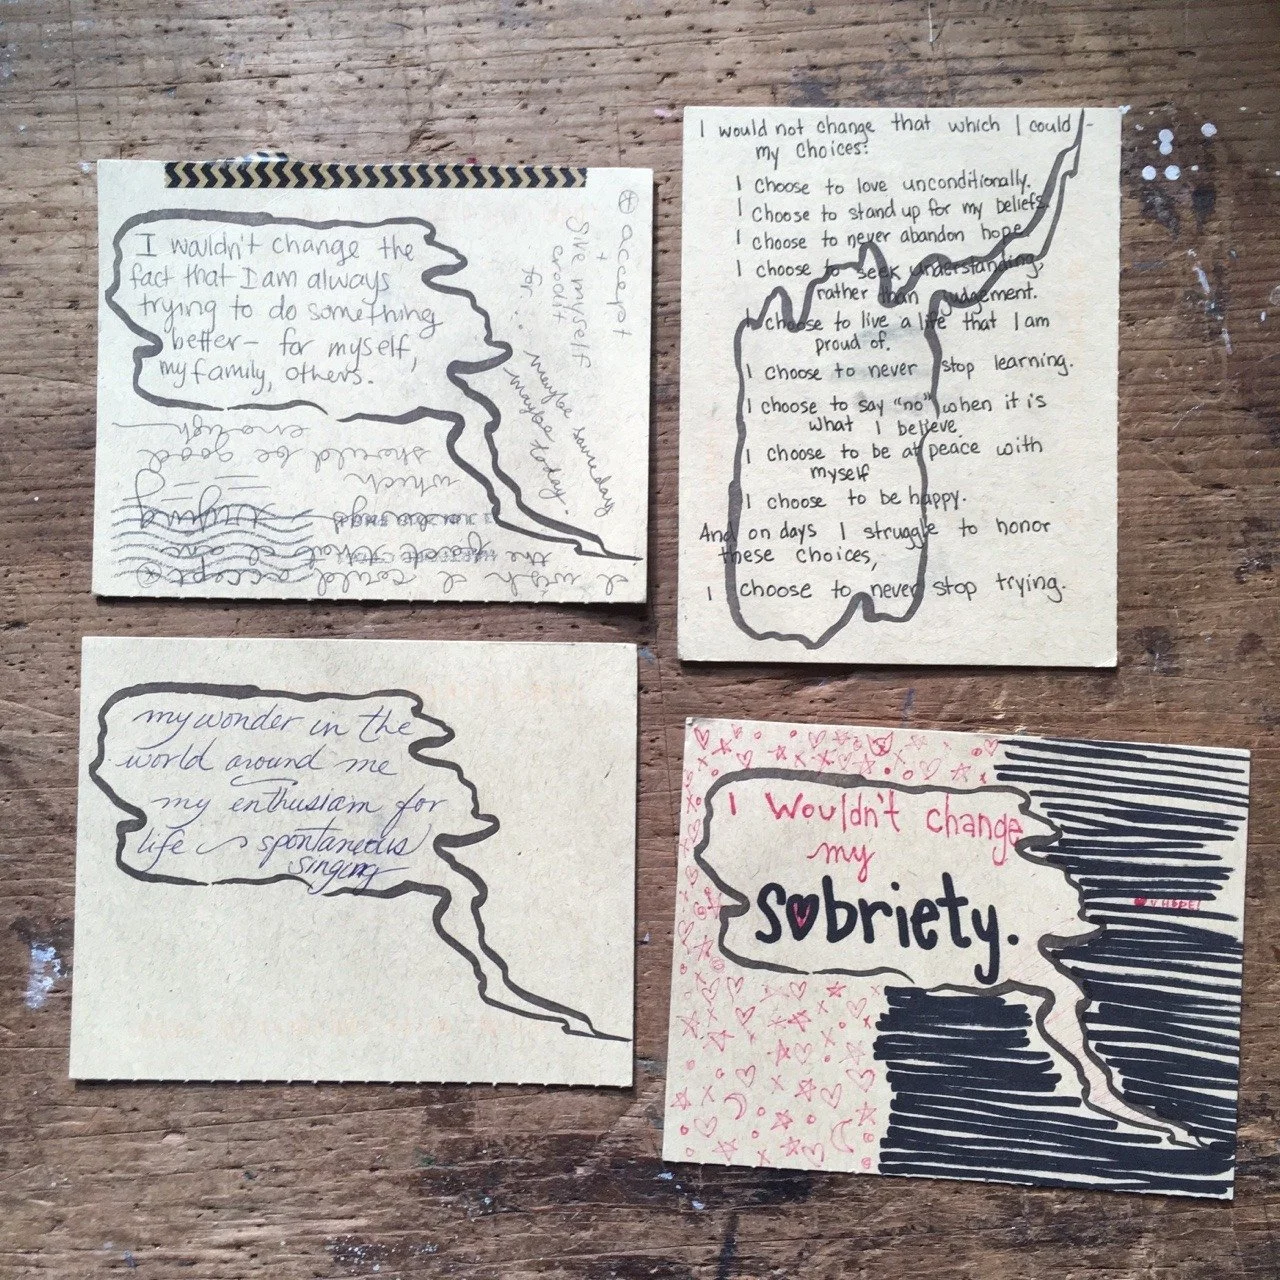 I wouldn't change the
fact that I am always
trying to do something
better- for myself,
my family, others.
I wish I could accept
the
trying
which
should be good
enough
accept
+
give myself
credit
for...
maybe someday
maybe today.
I would not change that which I could -
my choices:
I choose to love unconditionally.
I choose to stand up for my beliefs.
I choose to never abandon hope.
I choose to seek understanding,
rather than judgement.
I choose to live a life that I am
proud of.
I choose to never stop learning.
I choose to say "no" when it is
what I believe.
I choose to be at peace with
myself
I choose to be happy.
And on days I struggle to honor
these choices,
I choose to never stop trying.
my wonder in the
world around me
my enthusiam for
life spontaneous
singing
I Wouldn't change
my
Sobriety.
HOPE!